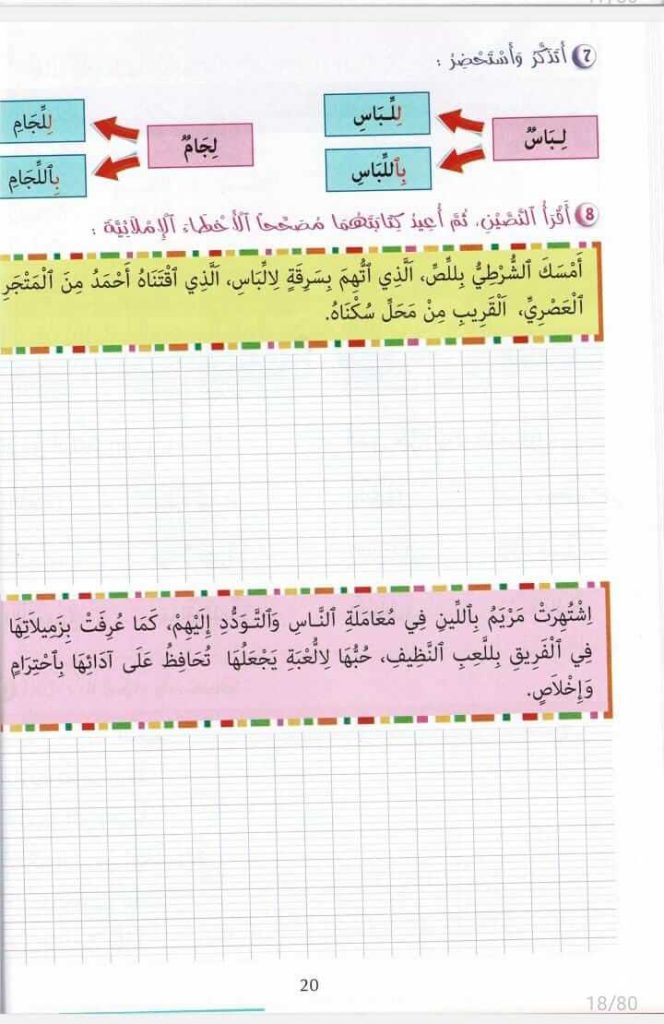 7 أَتَذَكَّرُ وَأَسْتَحْضِرُ :
لِبَاسٌ
لِلِّبَاسِ
بِٱللِّبَاسِ
لِجَامٌ
لِلِّجَامِ
بِٱللِّجَامِ
8 أَقْرَأُ ٱلنَّصَّيْنِ، ثُمَّ أُعِيدُ كِتَابَتَهُمَا مُصَحِّحاً ٱلْأَخْطَاءَ ٱلْإِمْلَائِيَّةَ :
أَمْسَكَ ٱلشُّرْطِيُّ بِللِّصِّ، ٱلَّذِي ٱتُّهِمَ بِسَرِقَةٍ لِالِّبَاسِ، ٱلَّذِي ٱقْتَنَاهُ أَحْمَدُ مِنَ ٱلْمَتْجَرِ
ٱلْعَصْرِيِّ، ٱلْقَرِيبِ مِنْ مَحَلِّ سُكْنَاهُ.
اِشْتُهِرَتْ مَرْيَمُ بِٱللِّينِ فِي مُعَامَلَةِ ٱلنَّاسِ وَٱلتَّوَدُّدِ إِلَيْهِمْ، كَمَا عُرِفَتْ بِزَمِيلَاتِهَا
فِي ٱلْفَرِيقِ بِللَّعِبِ ٱلنَّظِيفِ، حُبُّهَا لِالُّعْبَةِ يَجْعَلُهَا تُحَافِظُ عَلَى آدَائِهَا بِٱحْتِرَامٍ
وَإِخْلَاصٍ.
20
18/80